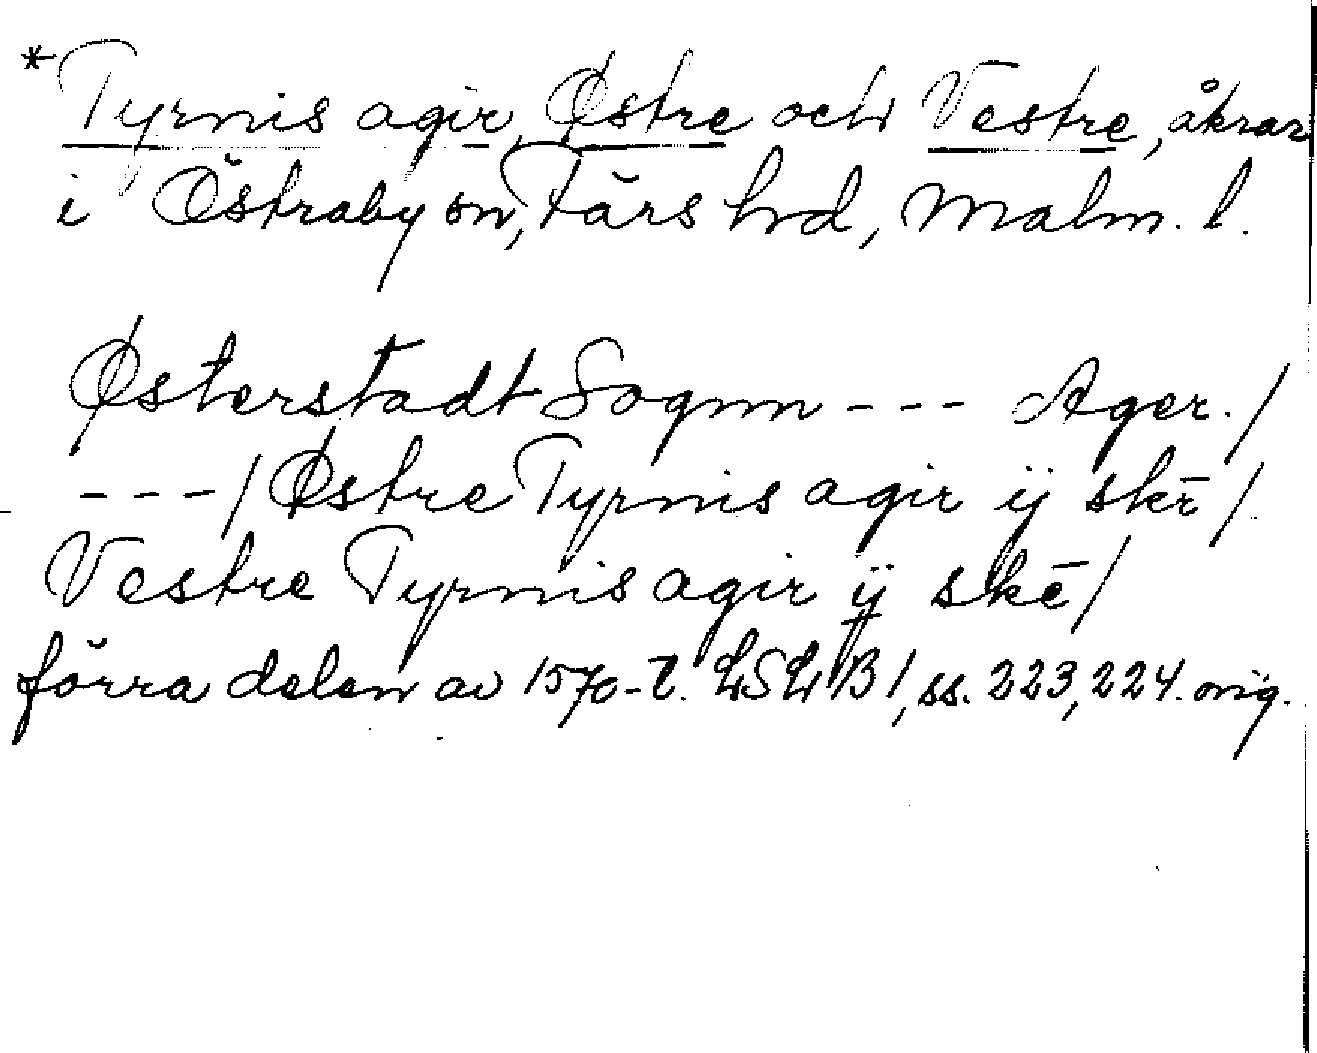 *Tyrnis agir, Østre och Vestre, åkrar
i Östraby sn, Färs hrd, Malm. l.
Østerstadt Sognn --- Ager. /
--- / Østre Tyrnis agir ij skē /
Vestre Tyrnis agir ij skē /
förra delen av 1570-t. LSLB 1, ss. 223, 224. orig.